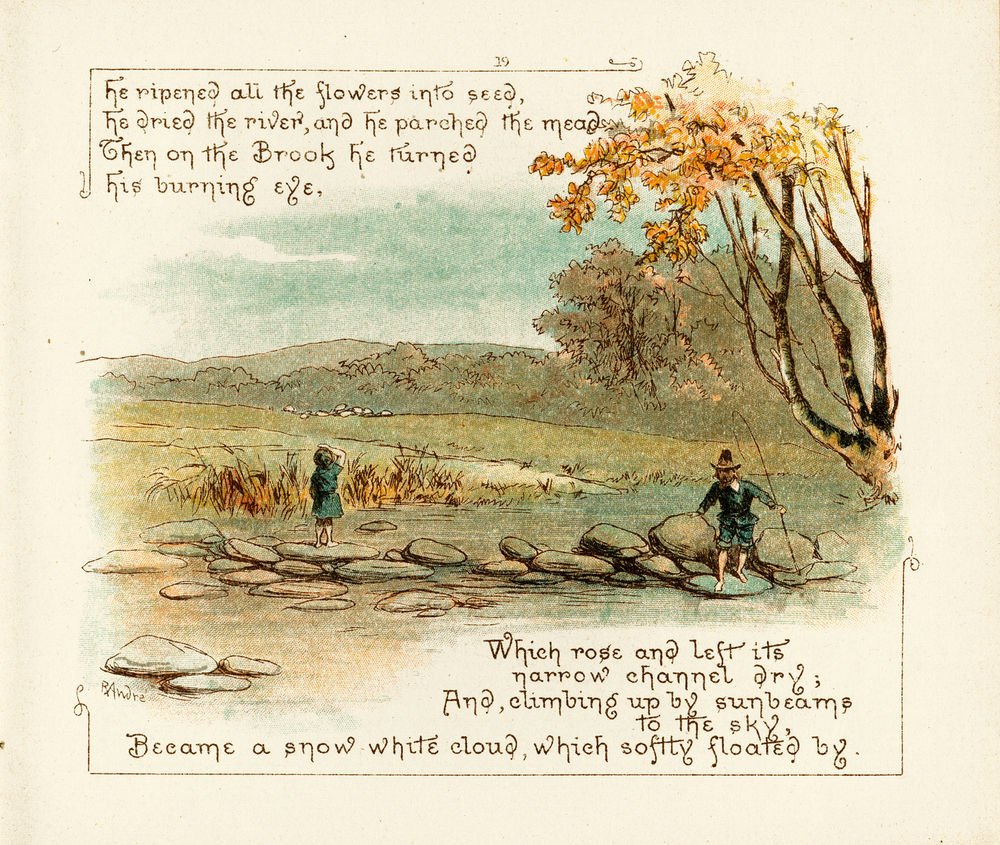 19
He ripened all the flowers into seed,
He dried the river, and he parched the mead,
Then on the Brook he turned
his burning eye,
Which rose and left its
narrow channel dry;
And, climbing up by sunbeams
to the sky,
Became a snow white cloud, which softly floated by.
R André